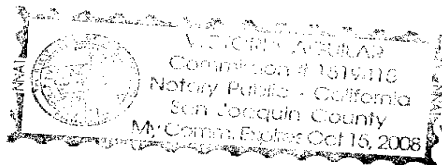 AGUILAR
Commission #
Notary Public - California
San Joaquin County
My Comm. Expires Oct 15, 2008